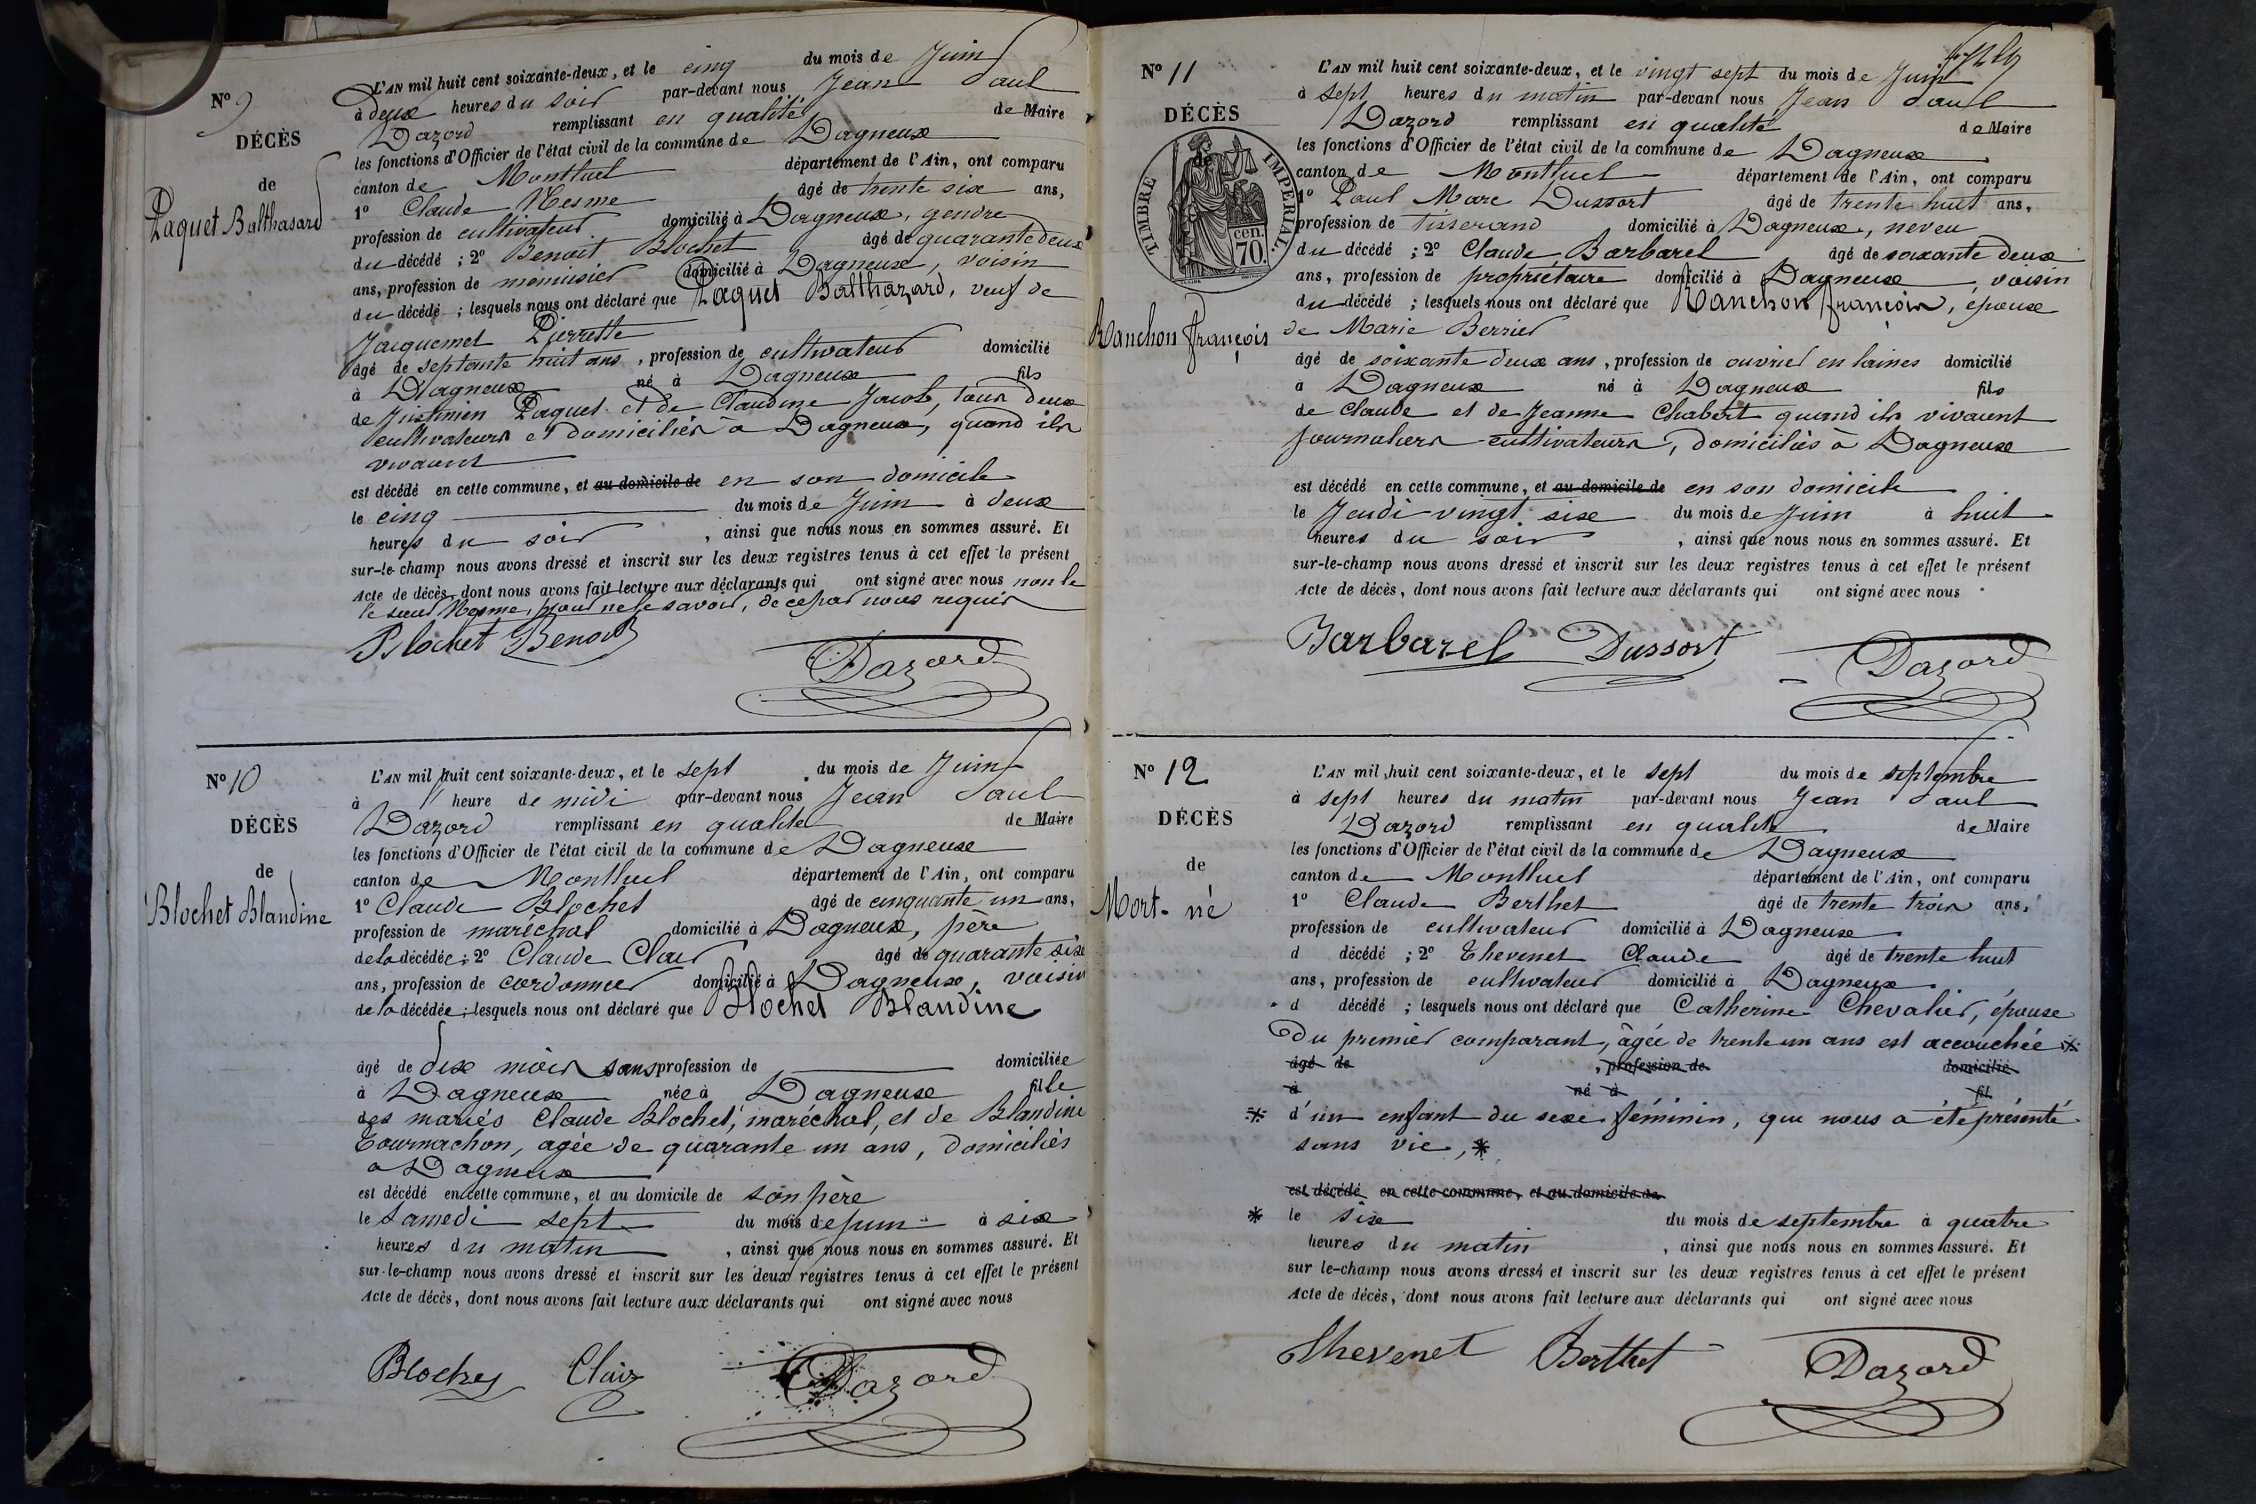 N° 9
DÉCÈS
de
Paquet Balthasard
L'AN mil huit cent soixante-deux, et le cinq du mois de Juin
à deux heures du soir par-devant nous Jean Paul
Dazord remplissant en qualité de Maire
les fonctions d'Officier de l'état civil de la commune de Dagneux
canton de Montluel département de l'Ain, ont comparu
1° Claude Nesme âgé de trente six ans,
profession de cultivateur domicilié à Dagneux, gendre
du décédé ; 2° Benoit Blochet âgé de quarante deux
ans, profession de menuisier domicilié à Dagneux, voisin
du décédé ; lesquels nous ont déclaré que Paquet Balthazard, veuf de
Jacquemet Pierrette
âgé de septante huit ans, profession de cultivateur domicilié
à Dagneux né à Dagneux fils
de Justinien Paquet et de Claudine Jacob, tous deux
cultivateurs et domiciliés à Dagneux, quand ils
vivaient
est décédé en cette commune, et au domicile de en son domicile
le cinq du mois de Juin à deux
heures du soir, ainsi que nous nous en sommes assuré. Et
sur-le-champ nous avons dressé et inscrit sur les deux registres tenus à cet effet le présent
Acte de décès, dont nous avons fait lecture aux déclarants qui ont signé avec nous non le
le sieur Nesme, pour ne le savoir, de ce par nous requis
Blochet Benoit
Dazord
N° 10
DÉCÈS
de
Blochet Blandine
L'AN mil huit cent soixante-deux, et le sept du mois de Juin
à heure de midi par-devant nous Jean Paul
Dazord remplissant en qualité de Maire
les fonctions d'Officier de l'état civil de la commune de Dagneux
canton de Montluel département de l'Ain, ont comparu
1° Claude Blochet âgé de cinquante un ans,
profession de maréchal domicilié à Dagneux, père
de la décédée ; 2° Claude Clair âgé de quarante six
ans, profession de cordonnier domicilié à Dagneux, voisin
de la décédée ; lesquels nous ont déclaré que Blochet Blandine
âgé de dix mois sans profession de domiciliée
à Dagneux née à Dagneux fille
des mariés Claude Blochet, maréchal, et de Blandine
Tournachon, agée de quarante un ans, domiciliés
à Dagneux
est décédé en cette commune, et au domicile de son père
le Samedi sept du mois de Juin à six
heures du matin, ainsi que nous nous en sommes assuré. Et
sur-le-champ nous avons dressé et inscrit sur les deux registres tenus à cet effet le présent
Acte de décès, dont nous avons fait lecture aux déclarants qui ont signé avec nous
Blochet Clair Dazord
N° 11
DÉCÈS
TIMBRE IMPÉRIAL.
cen.
70.
Ranchon françois
L'AN mil huit cent soixante-deux, et le vingt sept du mois de Juin
à sept heures du matin par-devant nous Jean Paul
Dazord remplissant en qualité de Maire
les fonctions d'Officier de l'état civil de la commune de Dagneux
canton de Montluel département de l'Ain, ont comparu
1° Paul Marc Dussort âgé de trente huit ans,
profession de tisserand domicilié à Dagneux, neveu
du décédé ; 2° Claude Barbarel âgé de soixante deux
ans, profession de propriétaire domicilié à Dagneux, voisin
du décédé ; lesquels nous ont déclaré que Ranchon françois, époux
de Marie Berrier
âgé de soixante deux ans, profession de ouvrier en laines domicilié
à Dagneux né à Dagneux fils
de Claude et de Jeanne Chabert quand ils vivaient
journaliers cultivateurs, domiciliés à Dagneux
est décédé en cette commune, et au domicile de en son domicile
le Jeudi vingt six du mois de Juin à huit
heures du soir, ainsi que nous nous en sommes assuré. Et
sur-le-champ nous avons dressé et inscrit sur les deux registres tenus à cet effet le présent
Acte de décès, dont nous avons fait lecture aux déclarants qui ont signé avec nous
Barbarel Dussort Dazord
N° 12
DÉCÈS
de
Mort-né
L'AN mil huit cent soixante-deux, et le sept du mois de septembre
à sept heures du matin par-devant nous Jean Paul
Dazord remplissant en qualité de Maire
les fonctions d'Officier de l'état civil de la commune de Dagneux
canton de Montluel département de l'Ain, ont comparu
1° Claude Berthet âgé de trente trois ans,
profession de cultivateur domicilié à Dagneux
d décédé ; 2° Thevenet Claude âgé de trente huit
ans, profession de cultivateur domicilié à Dagneux
d décédé ; lesquels nous ont déclaré que Catherine Chevalier, épouse
du premier comparant, âgée de trente un ans est accouchée *
âgé de , profession de domicilié
à né à fil
* d'un enfant du sexe féminin, que nous a été présenté
sans vie, *
est décédé en cette commune, et au domicile de
* le six du mois de septembre à quatre
heures du matin, ainsi que nous nous en sommes assuré. Et
sur le-champ nous avons dressé et inscrit sur les deux registres tenus à cet effet le présent
Acte de décès, dont nous avons fait lecture aux déclarants qui ont signé avec nous
Thevenet Berthet Dazord